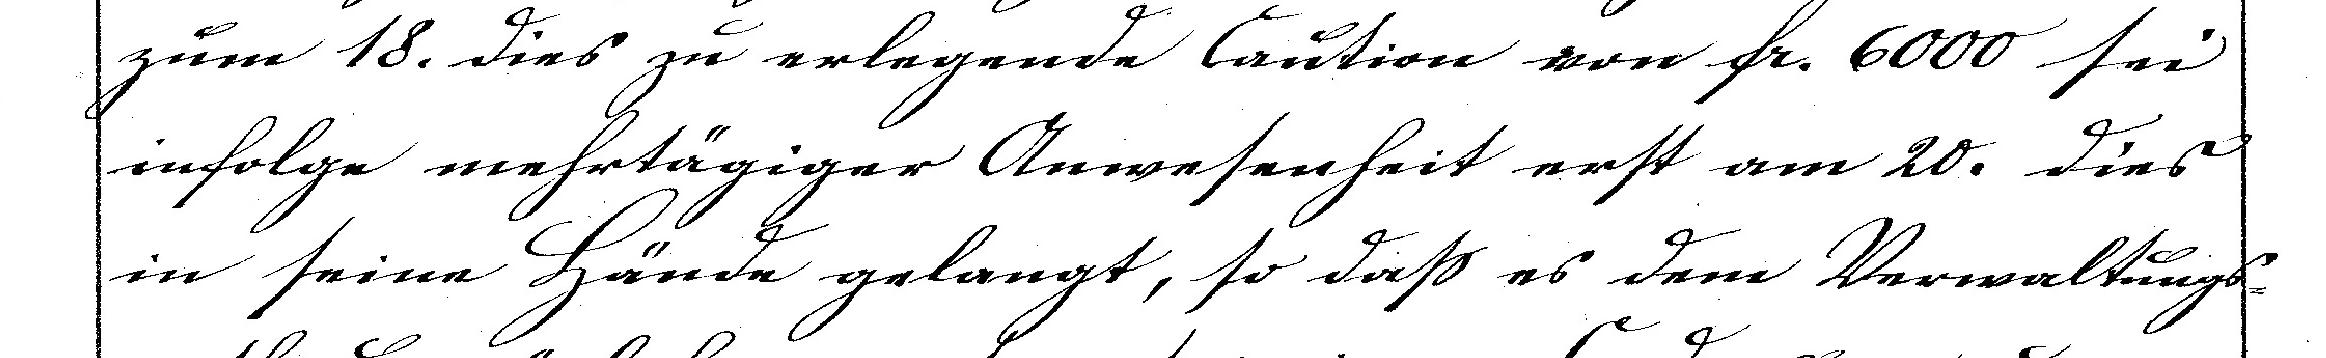 zum 18. dies zu erlegende Caution von fr. 6000 sei
infolge mehrtägiger Anwesenheit erst am 20. dies
in seine Hände gelangt, so daß es dem Verwaltungs-